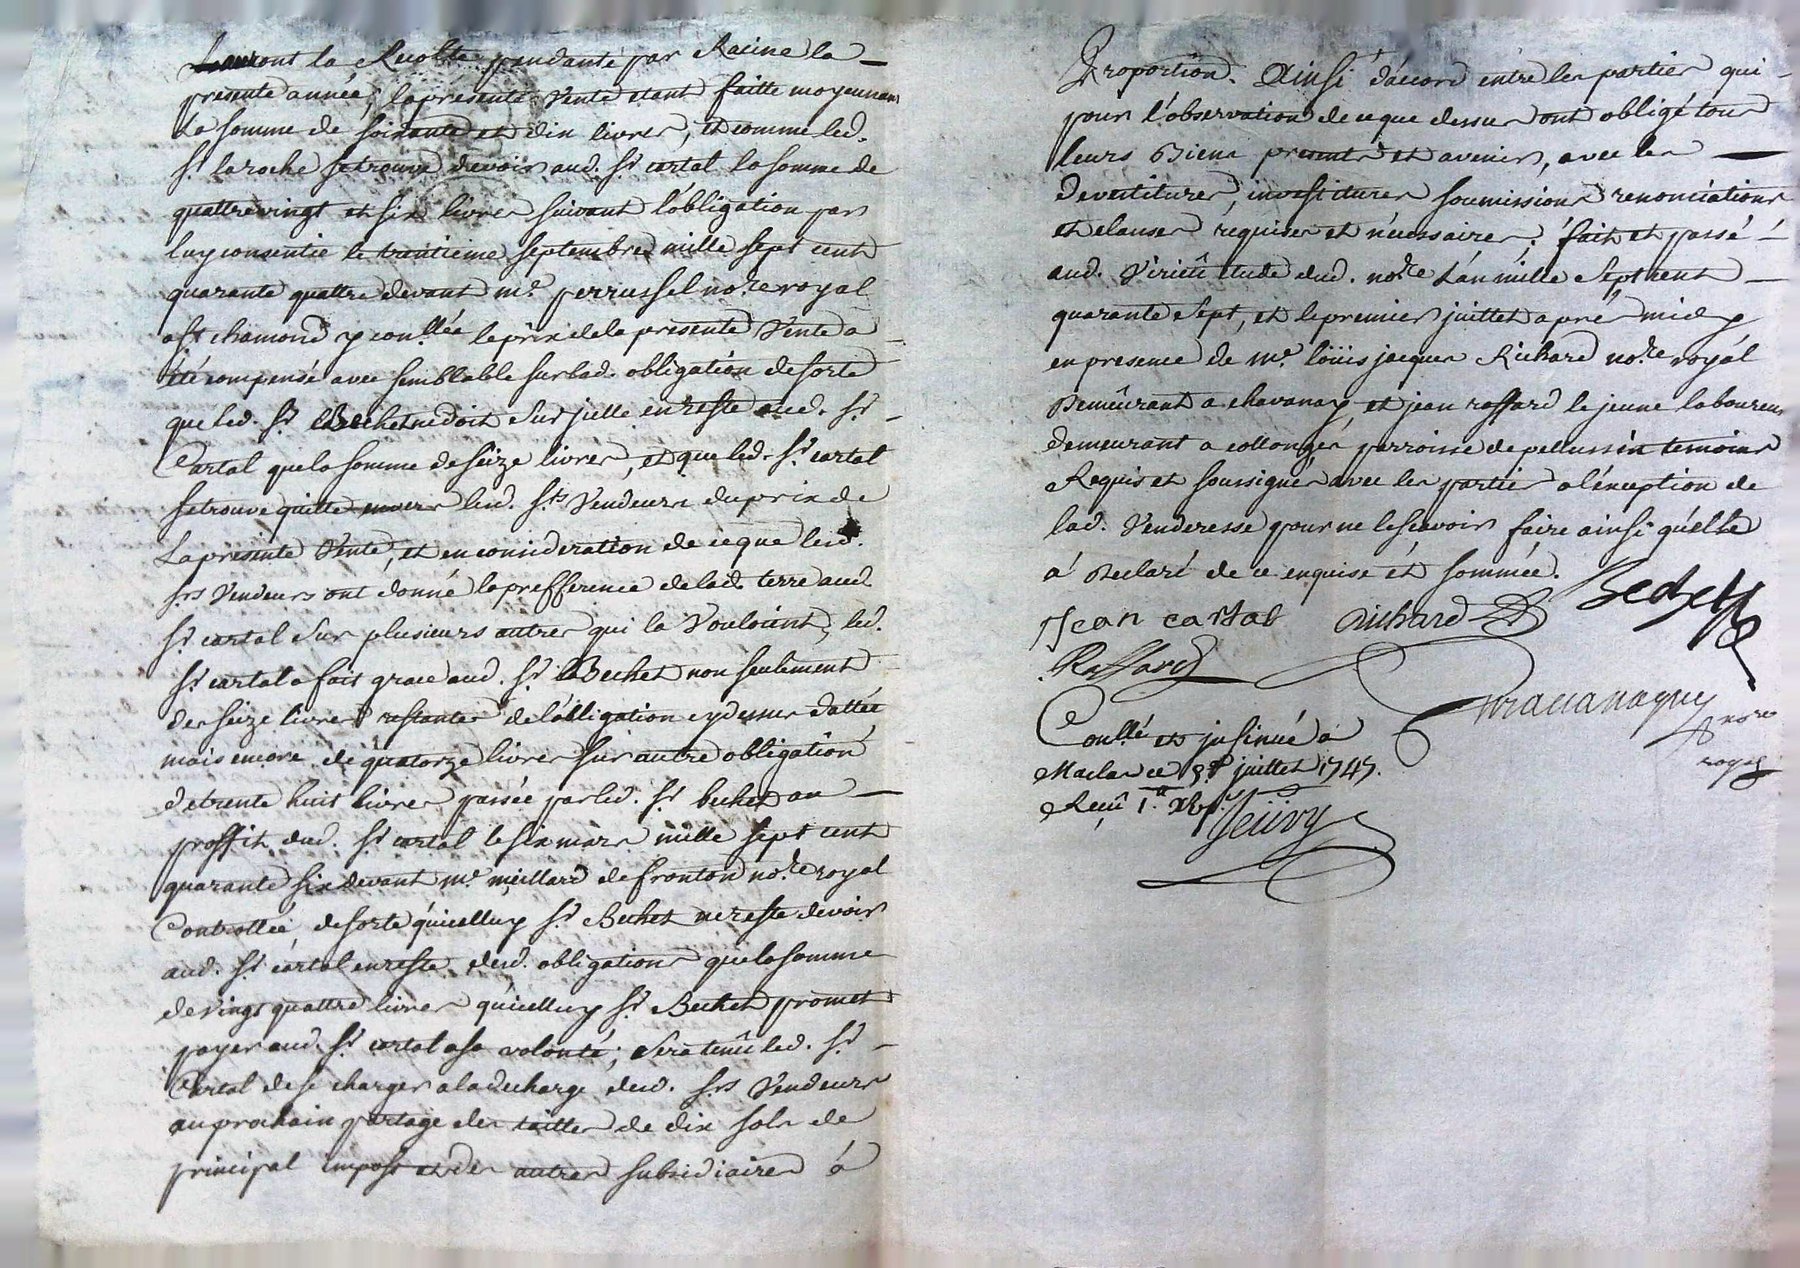 auront la Recolte pendante par Racine la
presente année, la presente Vente etant faitte moyennant
La somme de soixante et dix livres, et comme led.
Sr. laroche se trouve devoir aud. Sr. cartal la somme de
quattrevingt et six livres suivant l'obligation par
luy consentie le trantieme septembre mille sept cent
quarante quattre devant me. perrussel nore. royal
a St chamond y conllée le prix de la presente Vente a
été compensé avec semblable sur lad. obligation de sorte
que led. Sr Bechet ne doit sur jcelle en reste aud. Sr
Cartal que la somme de seize livres, et que led. Sr. cartal
se trouve quitte envers lesd. Srs Vendeurs du prix de
La presente Vente, et en consideration de ce que lesd.
Srs Vendeurs ont donné la prefference de lad. terre aud.
Sr cartal sur plusieurs autres qui la Vouloient, led.
Sr. cartal a fait grace aud. Sr Bechet non seulement
des seize livres restantes de l'obligation cy dessus dattée
mais encore de quatorze livres sur autre obligation
de trente huit livres passée par led. Sr bechet au
proffit dud. Sr cartal le six mars mille sept cent
quarante six devant me. meillard de fronton nore. royal
Controllée, de sorte qu'icelluy Sr. Bechet ne reste devoir
aud. Sr. cartal en reste desd. obligations que la somme
de vingt quattre livres qu'icelluy Sr Bechet promet
payer aud. Sr. cartal a sa volonté; sera tenû led. Sr.
Cartal de se charger a la decharge desd. Srs Vendeurs
au prochain partage des tailles de dix sols de
principal impost et des autres subsidiaires à
Proportion. Ainsi d'accord entre les parties qui
pour l'observation de ce que dessus ont obligé tous
leurs Biens presents et avenir, avec les
devestitures, investitures soumissions renonciations
et clauses requises et nécessaires; fait et passé
aud. Virieû étude dud. nore. L'an mille Sept cent
quarante sept, et le premier juillet aprés midy
en presence de me. loüis jacques Richard nore. royal
Demeûrant a chavanay et jean raffard le jeune laboureur
demeurant a collonges parroisse de pellussin temoins
Requis et soussignés avec les parties a l'éxception de
lad. Venderesse pour ne le scavoir faire ainsi qu'elle
à Declaré de ce enquise et sommée.
Jean cartal Richard Bechet
Raffard
nore
royal
Conllé et jnsinué a
Maclas ce juillet 1747.
Reçû